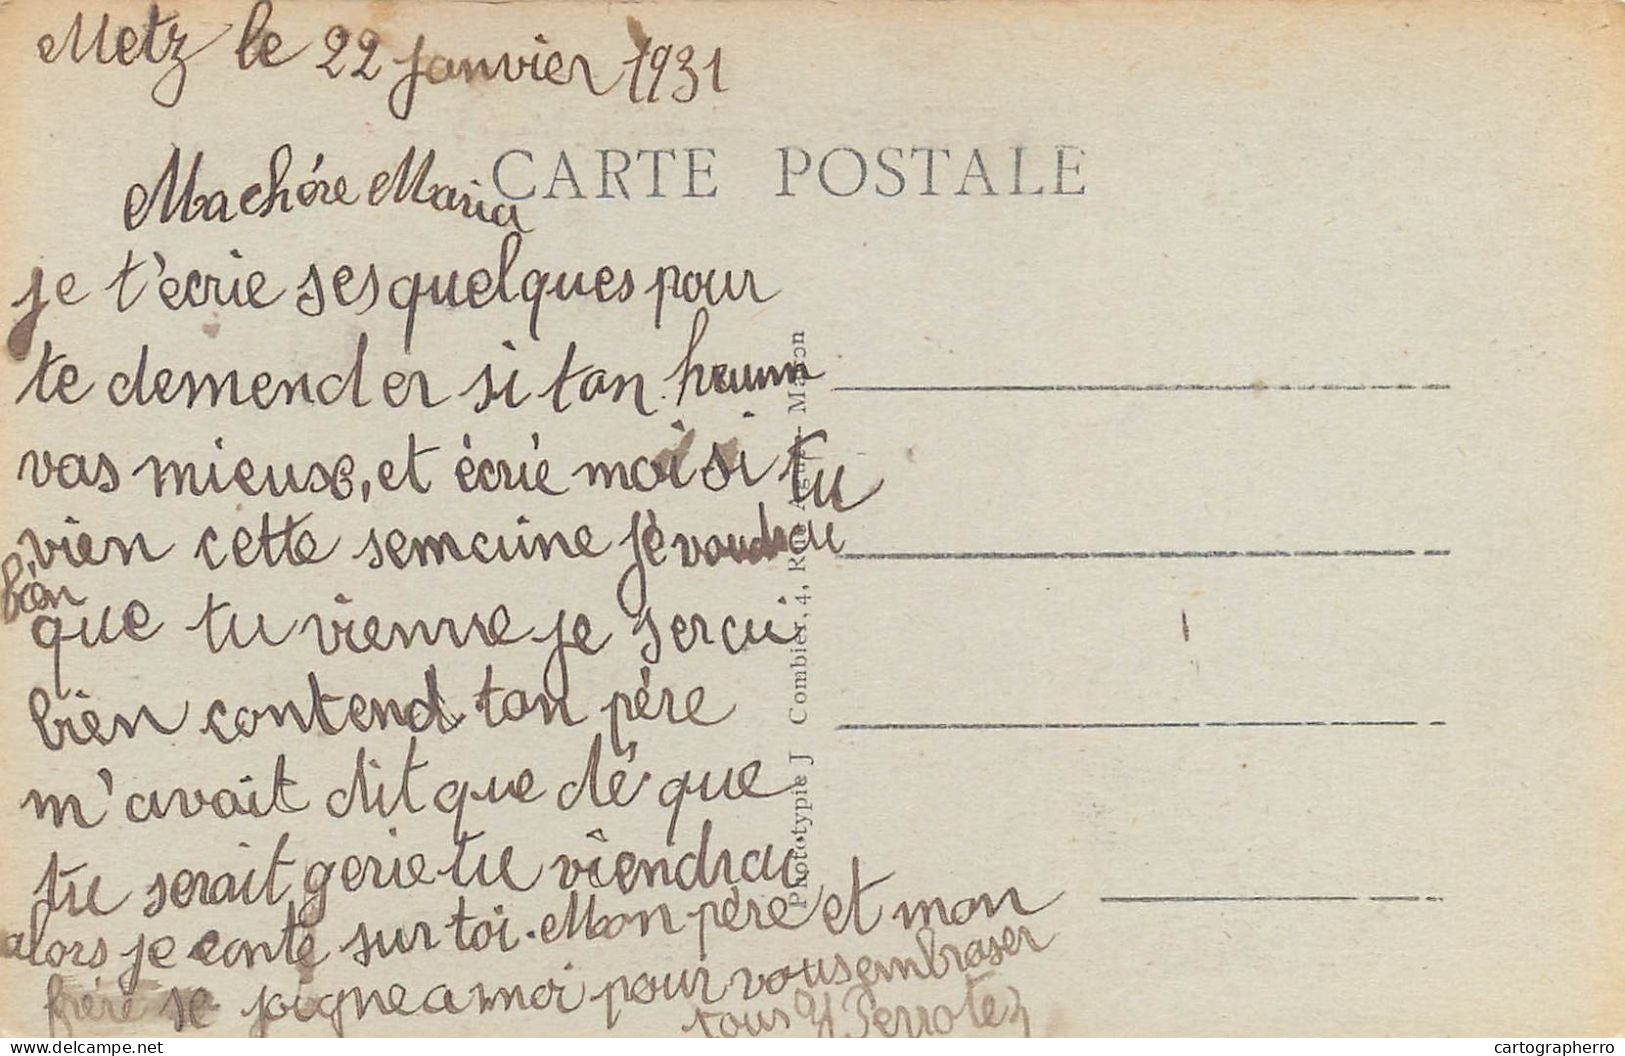 Metz le 22 janvier 1931
CARTE POSTALE
Ma chére Maria
je t'écrie ses quelques pour
te demender si ton hrumm
vas mieuse, et écrié moi si tu
vien cette semaine je voudrai
bien
que tu vienne je serai
bien contend ton pére
m'avait dit que dé que
tu serait gerie tu viendrai
alors je conte sur toi. Mon pére et mon
frére se joigne a moi pour vous embraser
tous Perrotez
Phototypie J Combier, 4, Rue Mâcon
cartographerro